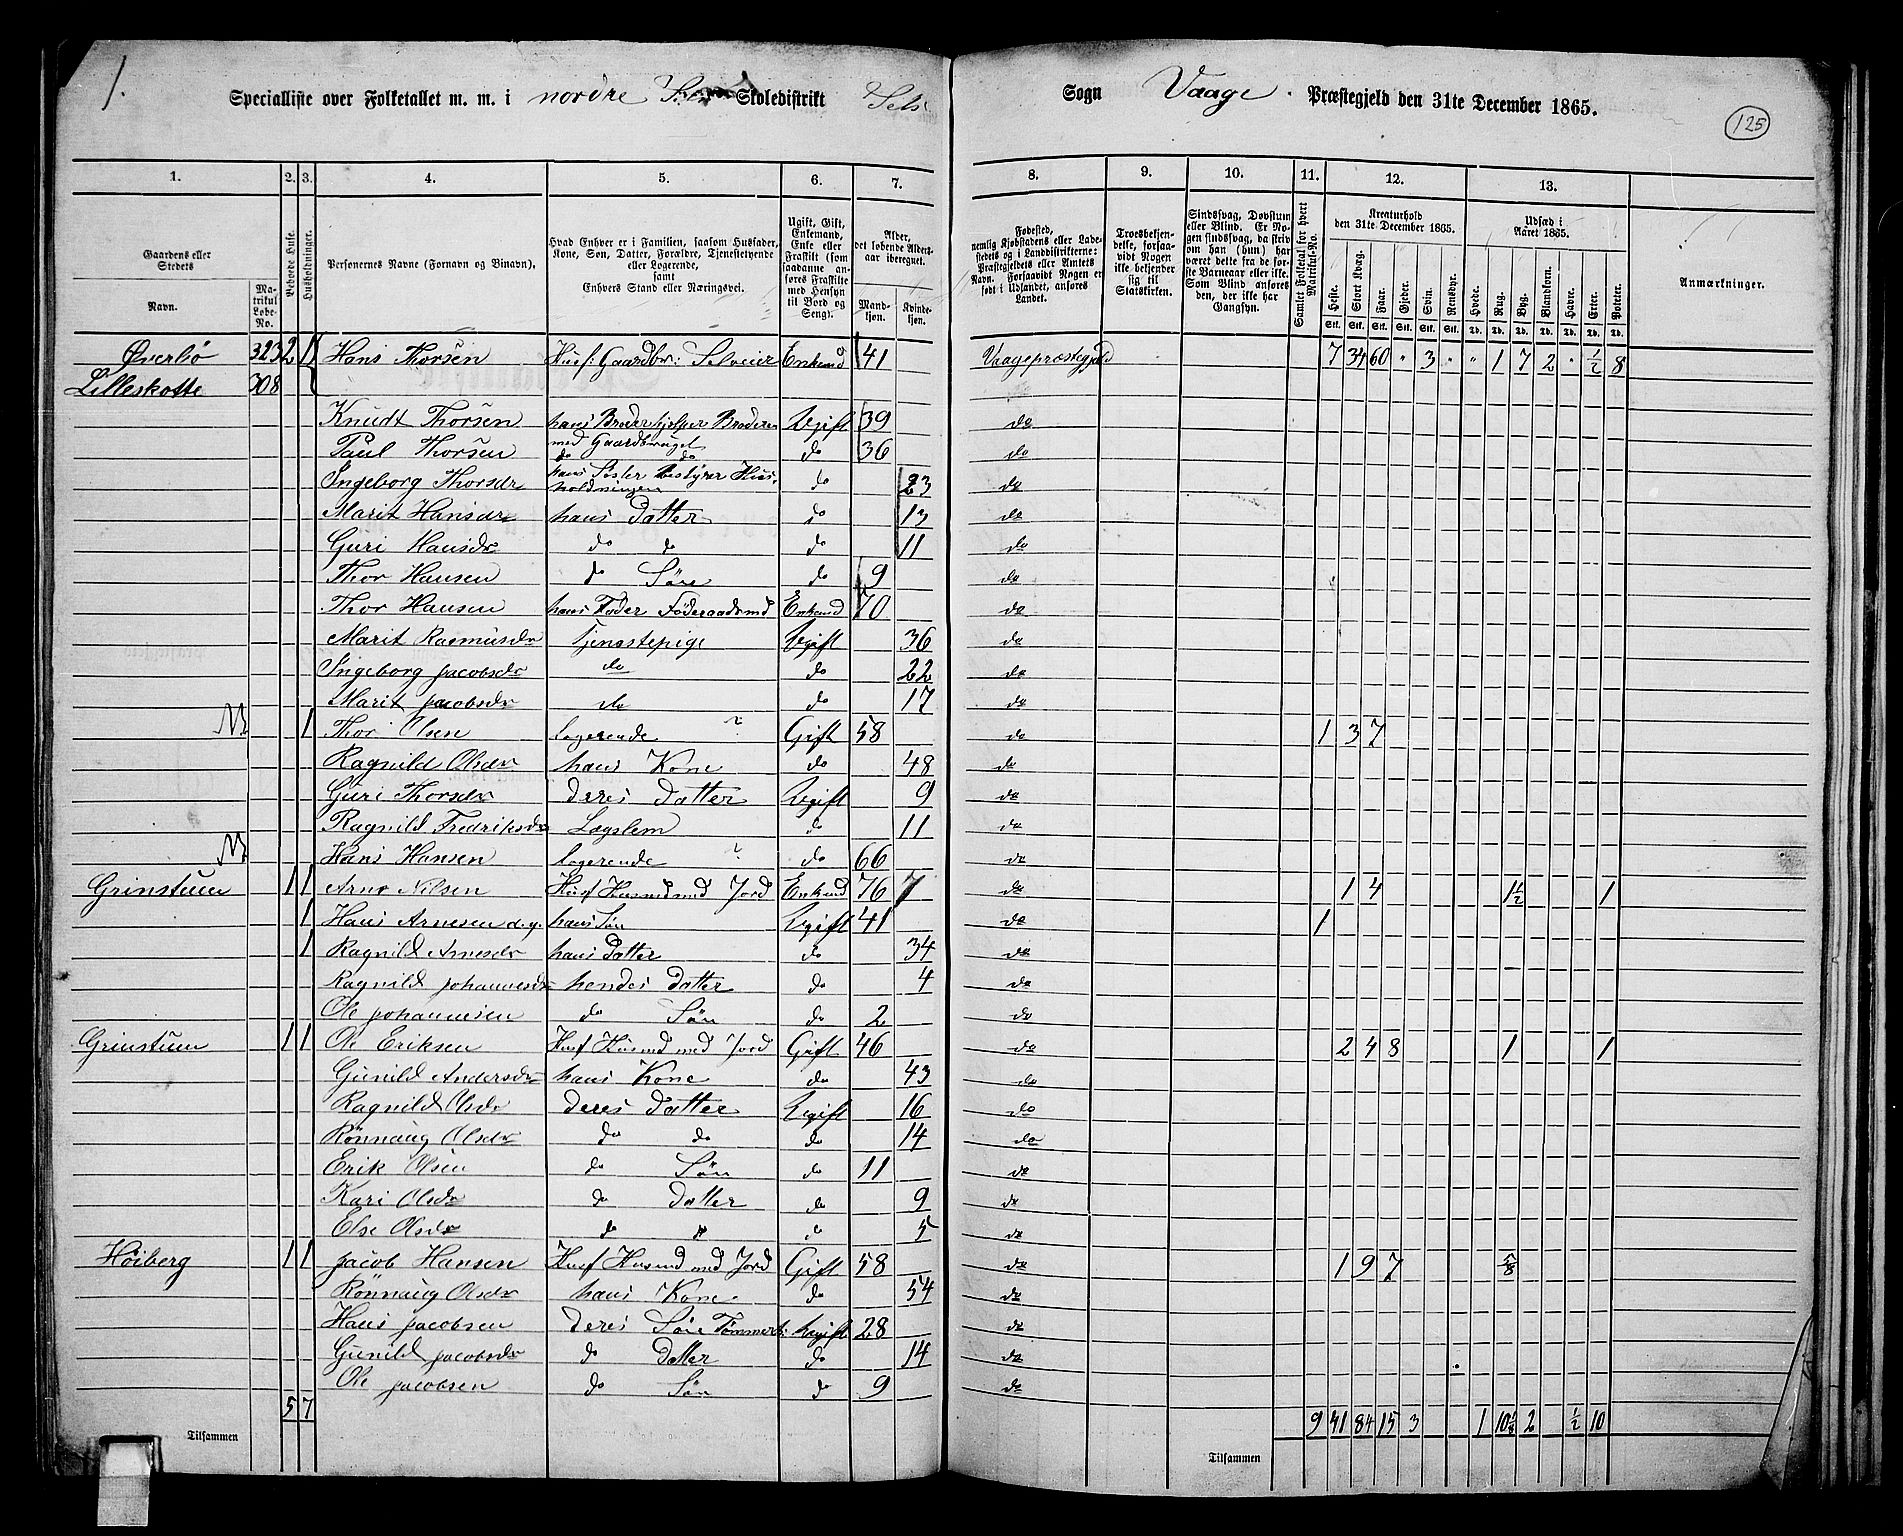 1.
Specialliste over Folketallet m. m. i nordre Skoledistrikt Sels Sogn Vaage Præstegjeld den 31te December 1865.
125
1. 2. 3. 4. 5. 6. 7. 8. 9. 10. 11. 12. 13.
Gaardens eller Stedets
Navn.
Matrikul Løbe-No.
Beboede Huse.
Husholdninger.
Personernes Navne (Fornavn og Binavn).
Hvad Enhver er i Familien, saasom Husfader, Kone, Søn, Datter, Forældre, Tjenestetyende eller Logerende, samt Enhvers Stand eller Næringsvei.
Ugift, Gift, Enkemand, Enke eller Fraskilt (som saadanne anføres Fraskilte med Hensyn til Bord og Seng).
Alder, det løbende Aldersaar iberegnet.
Mandkjøn. Kvindekjøn.
Fødested, nemlig Kjøbstadens eller Ladestedets og i Landdistrikterne: Præstegjeldets eller Amtets Navn. Forsaavidt Nogen er født i Udlandet, anføres Landet.
Troesbekjendelse, forsaavidt Nogen ikke bekjender sig til Statskirken.
Sindssvag, Døvstum eller Blind. Er Nogen sindssvag, da skriv om han (hun) har været det fra de første Barneaar eller ikke. Som Blind anføres den, der ikke har Gangsyn.
Samlet Folketal for hvert Matrikul-No.
Kreaturhold den 31te December 1865.
Heste. Stort Kvæg. Faar. Gjeder. Svin. Rensdyr.
Udsæd i Aaret 1865.
Hvede. Rug. Byg. Blandkorn. Havre. Erter. Poteter.
Stk. Stk. Stk. Stk. Stk. Stk. Td. Td. Td. Td. Td. Td. Td.
Anmærkninger.
Øverbø 323 2 1 Hans Thorsen Husf: Gaardbr: Selveier Enkemd 41 Vaagepræstegjeld 7 34 60 " 3 " " 1 7 2 " ½ 8
Lilleskotte 308
Knudt Thorsen hans Broder hjelper Broderen med Gaardbruget Ugift 39 do
Paul Thorsen do do do 36 do
Ingeborg Thorsdr hans Søster bestyrer Husholdningen do 23 do
Marit Hansdr hans Datter do 13 do
Guri Hansdr do do do 11 do
Thor Hansen do Søn do 9 do
Thor Hansen hans Fader Föderaadsmd Enkemd 70 do
Marit Rasmusdr Tjenestepige Ugift 36 do
Ingeborg Jacobsdr do do 22 do
Marit Jacobsdr do do 17 do
1 Thor Olsen logerende ? Gift 58 do 1 3 7
Ragnild Olsdr hans Kone do 48 do
Guri Thorsdr deres Datter Ugift 9 do
Ragnild Fredriksdr Lægslem do 11 do
Hans Hansen logerende ? do 66 do
Grinstuen 1 1 Arne Nilsen Husf Husmd med Jord Enkemd 76 7 do 1 4 1½ 1
1 Hans Arnesen d.y. hans Søn Ugift 41 do 1
1 Ragnild Arnesdr hans Datter do 34 do
Ragnild Johannesdr hendes Datter do 4 do
Ole Johannesen do Søn do 2 do
Grinstuen 1 1 Ole Eriksen Husf Husmd med Jord Gift 46 do 2 4 8 1 1
Gunild Andersdr hans Kone do 43 do
Ragnild Olsdr deres Datter Ugift 16 do
Rönnaug Olsdr do do do 14 do
Erik Olsen do Søn do 11 do
Kari Olsdr do Datter do 9 do
Else Olsdr do do 5 do
Høiberg 1 1 Jacob Hansen Husf Husmd med Jord Gift 58 do 1 9 7 ⅝
Rönnaug Olsdr hans Kone do 54 do
Hans Jacobsen deres Søn Ugift 28 do
Gunild Jacobsdr do Datter do 14 do
Ole Jacobsen do Søn do 9 do
5 7
Tilsammen
Tilsammen 9 41 84 15 3 1 2 ½ 10